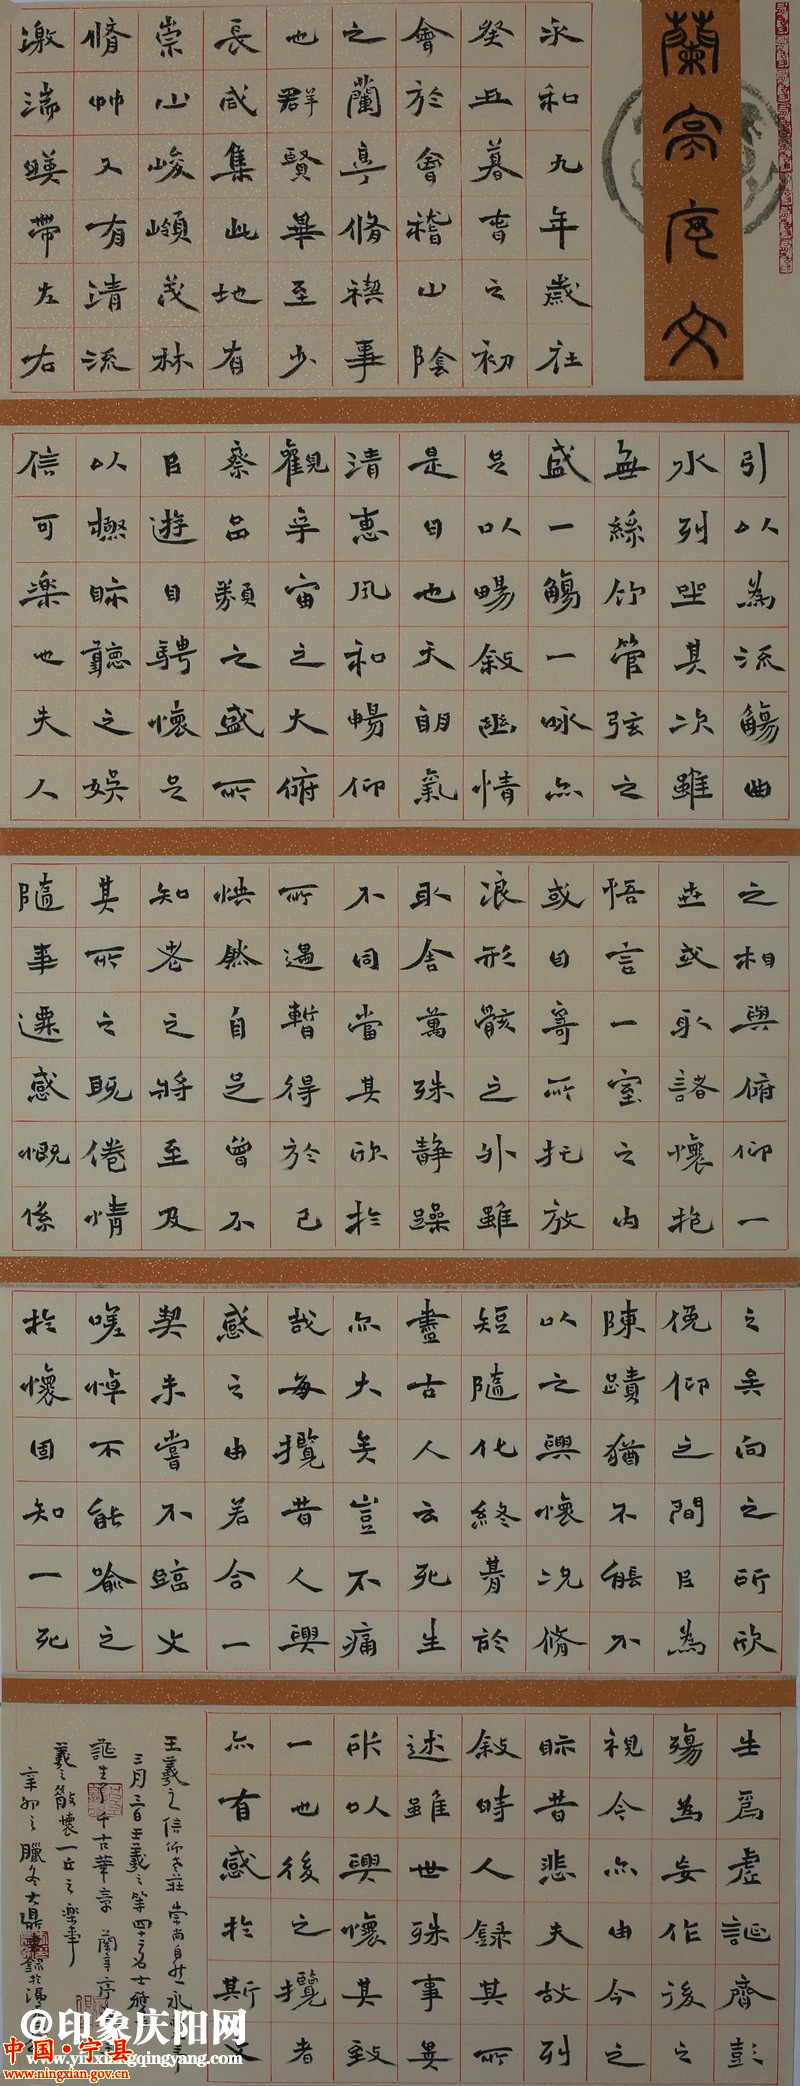 蘭亭序文
永和九年歲在
癸丑暮春之初
會於會稽山陰
之蘭亭脩稧事
也群賢畢至少
長咸集此地有
崇山峻嶺茂林
脩竹又有清流
激湍暎帶左右
引以為流觴曲
水列坐其次雖
無絲竹管弦之
盛一觴一咏亦
足以暢敘幽情
是日也天朗氣
清惠風和暢仰
觀宇宙之大俯
察品類之盛所
以遊目騁懷足
以極視聽之娛
信可樂也夫人
之相與俯仰一
世或取諸懷抱
悟言一室之內
或因寄所托放
浪形骸之外雖
取舍萬殊靜躁
不同當其欣於
所遇暫得於己
怏然自足曾不
知老之將至及
其所之既倦情
隨事遷感慨係
之矣向之所欣
俛仰之間以為
陳蹟猶不能不
以之興懷況脩
短隨化終期於
盡古人云死生
亦大矣豈不痛
哉每攬昔人興
感之由若合一
契未嘗不臨文
嗟悼不能喻之
於懷固知一死
生為虛誕齊彭
殤為妄作後之
視今亦由今之
視昔悲夫故列
敘時人錄其所
述雖世殊事異
所以興懷其致
一也後之攬者
亦有感於斯文
王羲之信仰老莊崇尚自然永
三月三日王羲之等四十二名士雅
誕生了千古華章蘭亭序
羲之散懷一丘之樂事
辛卯之臘冬大鼎錄於
@印象庆阳网
www.yinxiangqingyang.com
中国·宁县
www.ningxian.gov.cn